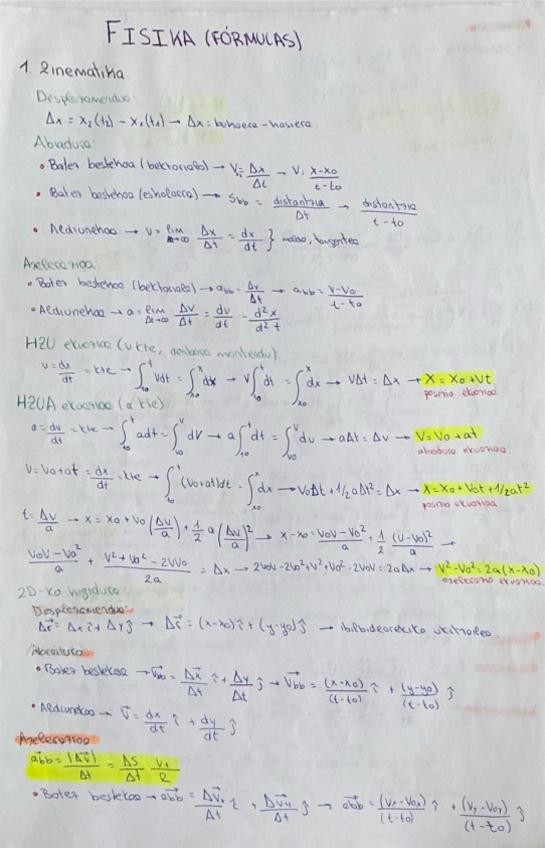 FISIKA (FÓRMULAS)
1. Zinematika
Desplazamendua:
Δx = x₂(t₂) - x₁(t₁) → Δx = bukaera - hasiera.
Abiadura:
• Batez bestekoa (bektoriala) → V = Δx/Δt → V = x-x₀/t-t₀
• Batez bestekoa (eskalarra) → Sbb = distantzia/Δt → distantzia/t-t₀
• Aldiunekoa → v = lim Δt→∞ Δx/Δt = dx/dt } tangentea
Azelerazioa:
• Batez bestekoa (bektoriala) → abb = Δv/Δt → abb = v-v₀/t-t₀
• Aldiunekoa → a = lim Δt→∞ Δv/Δt = dv/dt = d²x/d²t
H2U ekuazioa (v kte, denboran
v = dx/dt = kte → ∫ₜ₀ᵗ vdt = ∫ₓ₀ˣ dx → v∫ₜ₀ᵗ dt = ∫ₓ₀ˣ dx → vΔt = Δx → x = x₀ + vt
posizio ekuazioa
H2UA ekuazioa (a kte)
a = dv/dt = kte → ∫ₜ₀ᵗ adt = ∫ᵥ₀ᵛ dV → a∫ₜ₀ᵗ dt = ∫ᵥ₀ᵛ dv → aΔt = Δv → V = V₀ + at
abiadura ekuazioa
V = V₀ + at = dx/dt = kte → ∫ₜ₀ᵗ (V₀+at)dt = ∫ₓ₀ˣ dx → V₀Δt + 1/2 aΔt² = Δx → x = x₀ + V₀t + 1/2at²
posizio ekuazioa
t = Δv/a → x = x₀ + V₀(Δv/a) + 1/2 a(Δv/a)² → x-x₀ = V₀V-V₀²/a + 1/2 (V-V₀)²/a →
V₀V-V₀²/a + V²+V₀²-2VV₀/2a = Δx → 2V₀V-2V₀²+V²+V₀²-2V₀V = 2aΔx → V²-V₀² = 2a(x-x₀)
azelerazio ekuazioa
2D-ko higidura:
Desplazamendua:
Δr⃗ = Δx î + Δy ĵ → Δr⃗ = (x-x₀) î + (y-y₀) ĵ → ibilbidearekiko
Abiadura:
• Batez bestekoa → V⃗bb = Δx⃗/Δt î + Δy/Δt ĵ → V⃗bb = (x-x₀)/(t-t₀) î + (y-y₀)/(t-t₀) ĵ
• Aldiunekoa → V⃗ = dx/dt î + dy/dt ĵ
Azelerazioa
a⃗bb = |Δv⃗|/Δt = ΔS/Δt · V₁/R
• Batez bestekoa → a⃗bb = ΔV⃗x/Δt î + ΔV⃗y/Δt ĵ → a⃗bb = (Vx-V₀x)/(t-t₀) î + (Vy-V₀y)/(t-t₀) ĵ